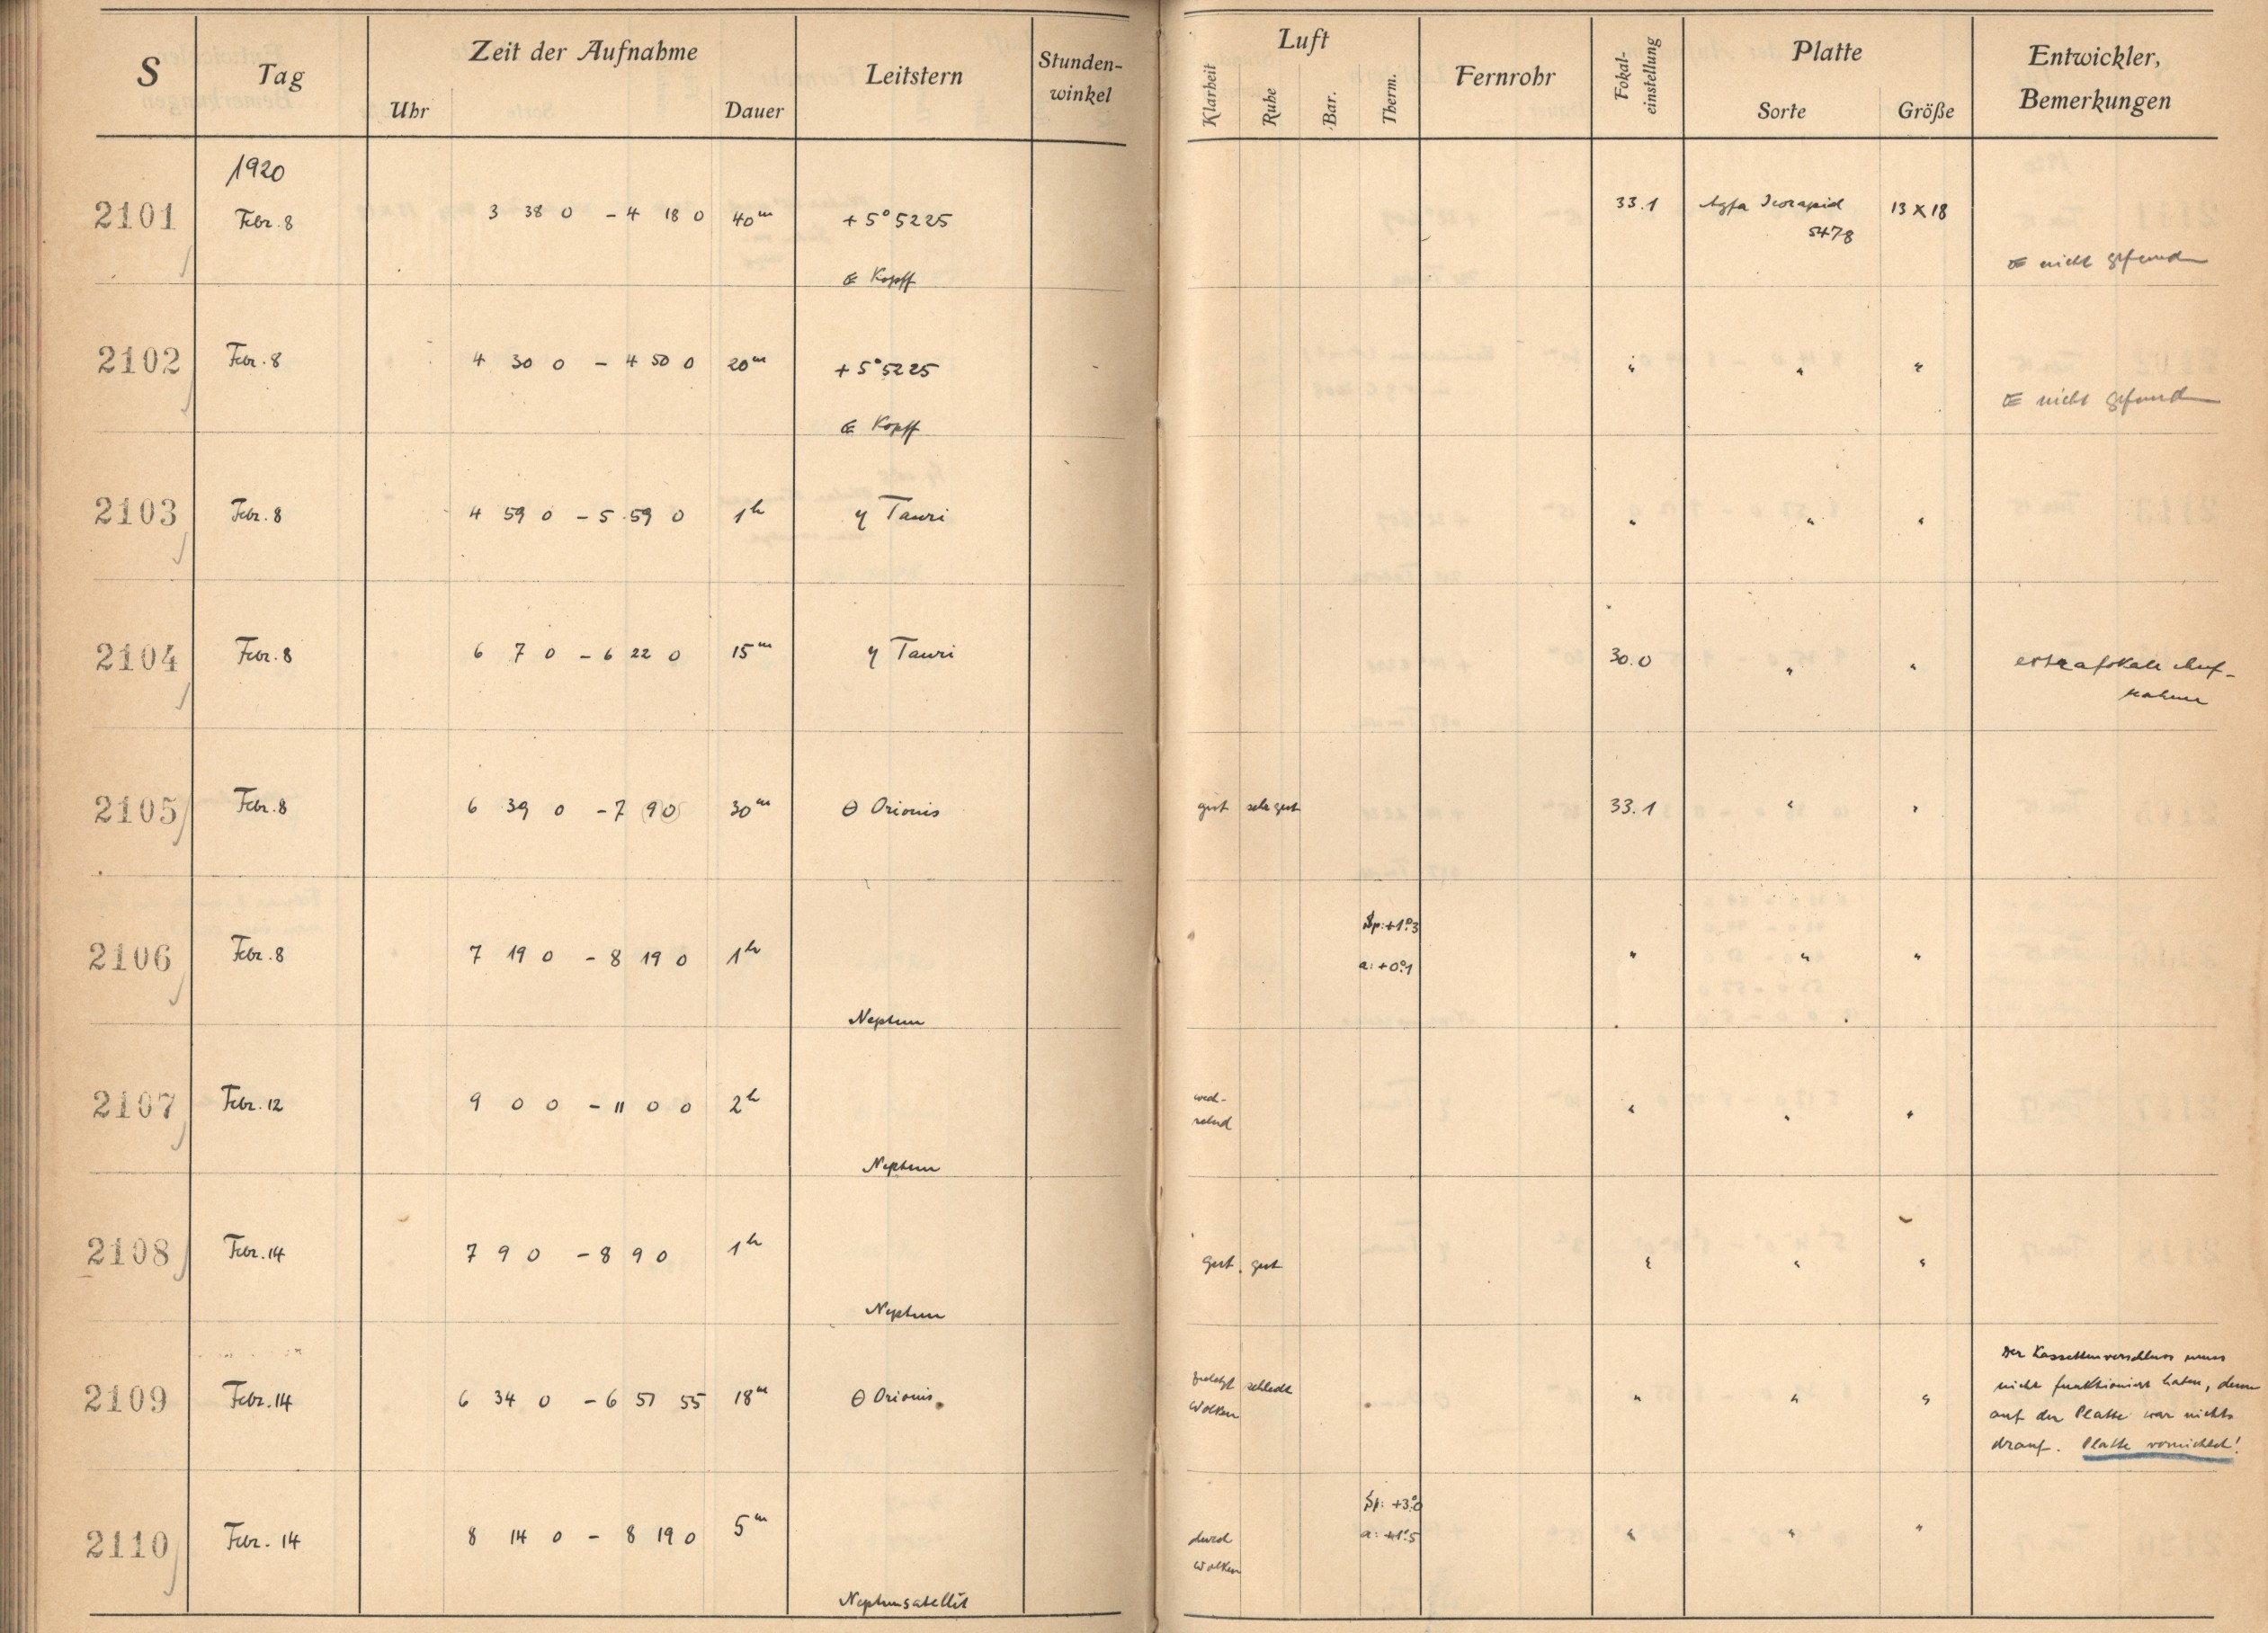 S Tag Zeit der Aufnahme Leitstern Stunden-winkel Luft Fernrohr Fokal-einstellung Platte Entwickler, Bemerkungen
Uhr Dauer Klarheit Ruhe Bar. Therm. Sorte Größe
1920
2101 Febr. 8 3 38 0 - 4 18 0 40m +5°5225 33.1 Agfa Isorapid 13 x 18
5478
Kopff nicht gefund
2102 Febr. 8 4 30 0 - 4 50 0 20m +5°5225 " " "
Kopff nicht gefund
2103 Febr. 8 4 59 0 - 5 59 0 1h η Tauri " " "
2104 Febr. 8 6 7 0 - 6 22 0 15m η Tauri 30.0 " " extrafokale Auf-
nahme
2105 Febr. 8 6 39 0 - 7 9 0 30m Θ Orionis gut sehr gut 33.1 " "
Sp: +1°.3
2106 Febr. 8 7 19 0 - 8 19 0 1h a: +0°.1 " " "
Neptun
2107 Febr. 12 9 0 0 - 11 0 0 2h wech-
selnd " " "
Neptun
2108 Febr. 14 7 9 0 - 8 9 0 1h gut gut " " "
Neptun
2109 Febr. 14 6 34 0 - 6 51 55 18m Θ Orionis schlecht " " "
Wolken
Der Kassettenverschluss muss
nicht funktioniert haben, denn
auf der Platte war nichts
drauf. Platte vernichtet!
Sp: +3°.0
2110 Febr. 14 8 14 0 - 8 19 0 5m durch a: +1°.5 " " "
Wolken
Neptunsatellit